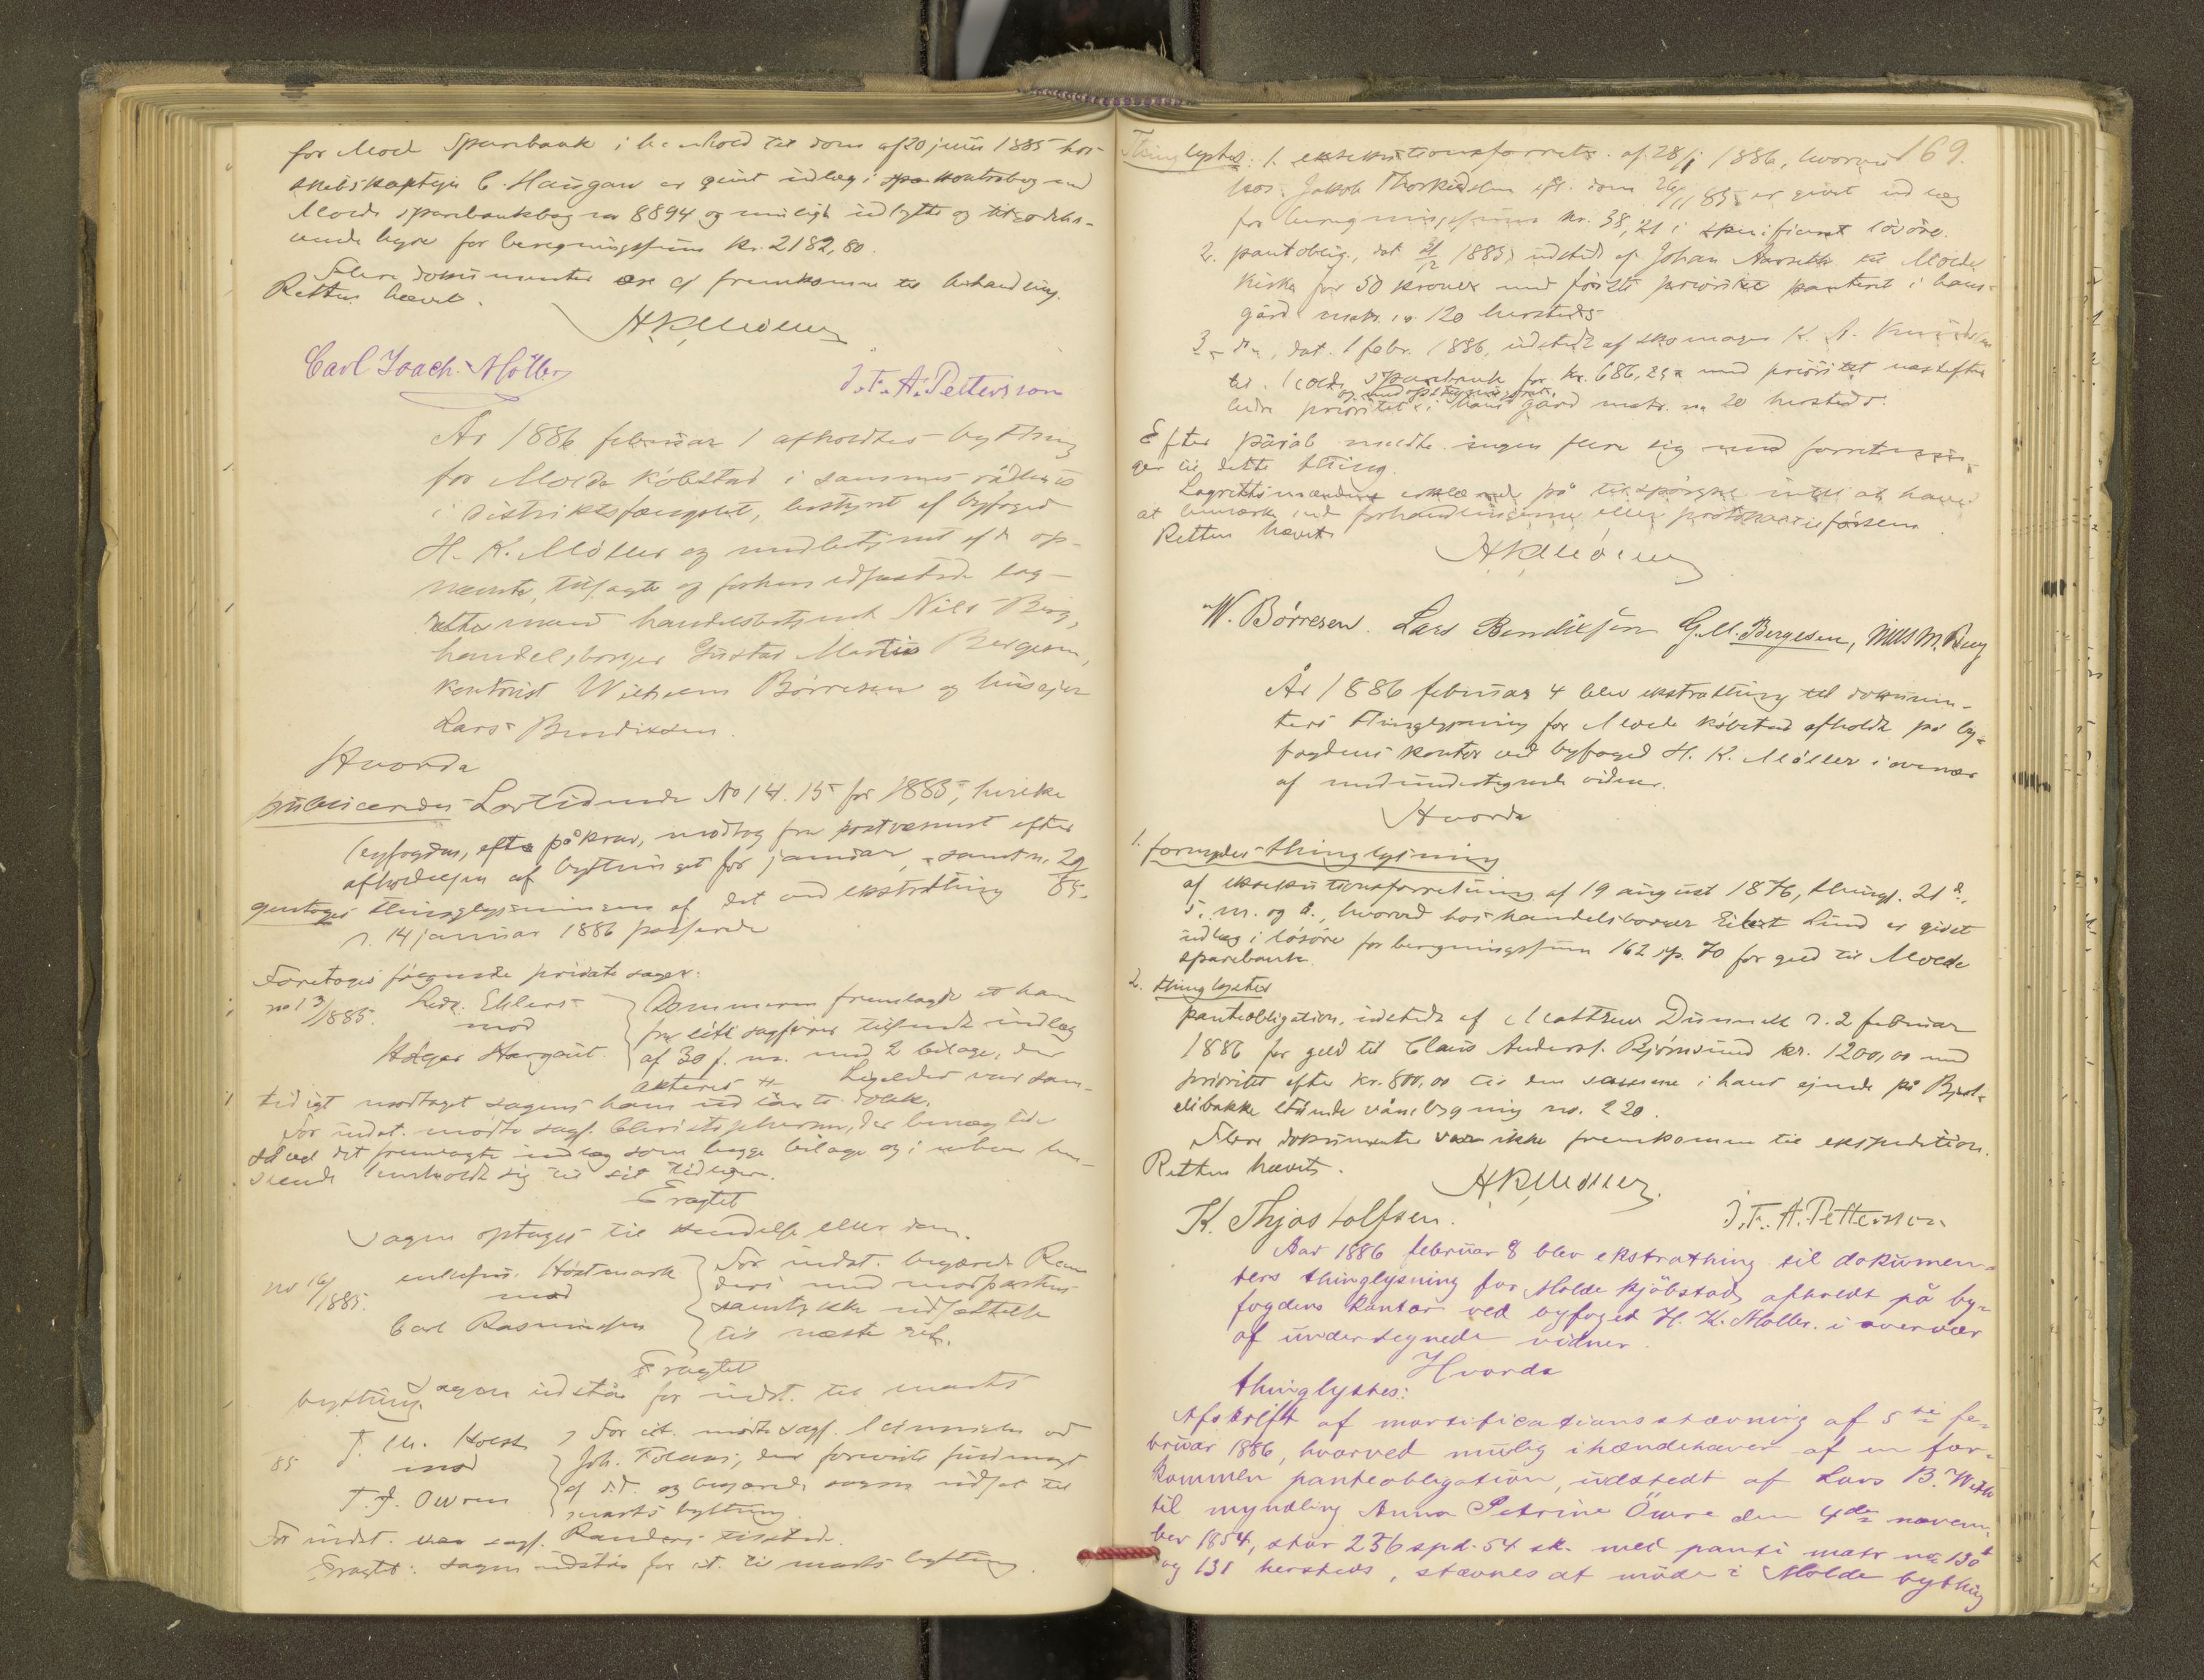 for Molde Sparebank i henhold til dom af 20 juni 1885 hos
skibskaptejn C. Haugan er givet udlæg i kontrabog med
Molde sparebankbog no 8894 og muligt
hyre for beregningssum kr. 2182,80.
Flere dokumenter ere ej fremkomne til behandling.
Retten hævet.
H K Møller
Carl Joach. Møller
J. F. A. Pettersson
År 1886 februar 1 afholdtes bything
for Molde købstad i sammes rådhus
i distriktsfængslet, bestyret af byfoged
H. K. Møller og medbetjent af de op-
nævnte, tilsagte og forhen edfæstede lag-
rettemænd handelsbetjent Nils Bing,
handelsborger Gustav Martin Bergesen,
kontorist Wilhelm Börresen og husejer
Lars Bendixsen.
Hvorda
publicerdes Lovtidende No 14. 15 for 1885, hvilke
byfogden, efter påkrav, modtog fra postvæsenet efter
afholdelsen af bythinget for januar, samt n. 29/85.
gentoges thinglysningen af det ved ekstrathing
d. 14 januar 1886 passerede
Foretoges følgende private sager:
no 13/1885. Ehlers
mod
Holger Hargaut.
Dommeren fremlagde et ham
fra citi sagfører tilsendt indlæg
af 30 f. m. med 2 bilage, der
akteres Ligeledes var sam-
tidigt modtaget sagens ham udlånte dokk.
For indst. mødte sagf. Christophersen, der benægtede
såvel det fremlagte indlæg som begge bilage og i enhver hen-
seende henholdt sig til sit tidligere.
Eragtet
Sagen optages til kendelse eller dom.
no 16/1885. Höstmark
mod
Carl Rasmussen
For indst. begjærede Ran
ders med modpartens
samtykke udsættelse
til næste ret.
Eragtet
Sagen udstår for indst. til marts
bything.
85 J. M. Holst
mod
T. J. Owren
For cit. mødte sagf. ved
Joh. Foleni, der foreviste fuldmagt
af d.d. og begjærede sagen udsat til
marts bything.
For indst. var sagf. Randers tilstede.
Eragtet: sagen udstår for cit. til marts bything.
169.
Thinglystes: 1. eksekutionsforretn. af 28/1 1886, hvorved
hos Jakob Thorkildsen efl. dom 26/11 85 er givet udlæg
for beregningssum kr. 38,21 i specificeret løsøre.
2. pantoblig., dat 21/12 1885, udstedt af Johan Aarseth til Molde
kirke for 50 kroner med første prioritet panteret i hans
gård matr. no. 120 hersteds.
3. Do, dat. 1 febr. 1886, udstedt af skomager K. A. Knudsen
til Molde sparebank for kr. 686,25 med prioritet næstefter
og med opstigningsret
ældre prioritet i hans gård matr. no 20 hersteds.
Efter påråb meldte ingen flere sig med forretnin-
ger til dette thing.
Lagrettemændene erklærede på tilspørgsel intet at have
at bemærke ved forhandlingerne eller protokolførselen.
Retten hævet
H K Møller
W. Børresen. Lars Bendixsen G. M. Bergesen, Nils M. Bing
År 1886 februar 4 blev ekstrathing til dokumen-
ters thinglysning for Molde købstad afholdt på by-
fogdens kontor ved byfoged H. K. Møller i overvær
af medundertegnede vidner.
Hvorda
1. fornyedes thinglysning
af eksekutionsforretning af 19 august 1876, thingl. 21 d.,
s. m. og å., hvorved hos handelsborger Eilert Lund er givet
udlæg i løsøre for beregningssum 162 sp. 70 for gæld til Molde
sparebank.
2. thinglystes
panteobligation, udstedt af Matthew Dunnell d. 2 februar
1886 for gæld til Claus Anders. Bjørnsund kr. 1200,00 med
prioritet efter kr. 800,00 til den samme i hans ejende på Bjel-
elibakke stående våningsbygning no. 220.
Flere dokumenter var ikke fremkomne til ekspedition.
Retten hævet.
H K Møller
K. Thjostolfsen. J. F. A. Pettersson
Aar 1886 februar 8 blev ekstrathing til dokumen-
ters thinglysning for Molde kjöbstad afholdt på by-
fogdens kontor ved byfoged H. K. Møller i overvær
af undertegnede vidner.
Hvorda
thinglystes:
Afskrift af mortificationsstævning af 5te fe-
bruar 1886, hvorved mulig ihændehaver af en for-
kommen panteobligation, udstedt af Lars B. With
til myndling Anna Petrine Öwre den 4de novem-
ber 1854, stor 236 spd. 54 sk. med pant i matr no 130b
og 131 hersteds, stævnes at møde i Molde bything